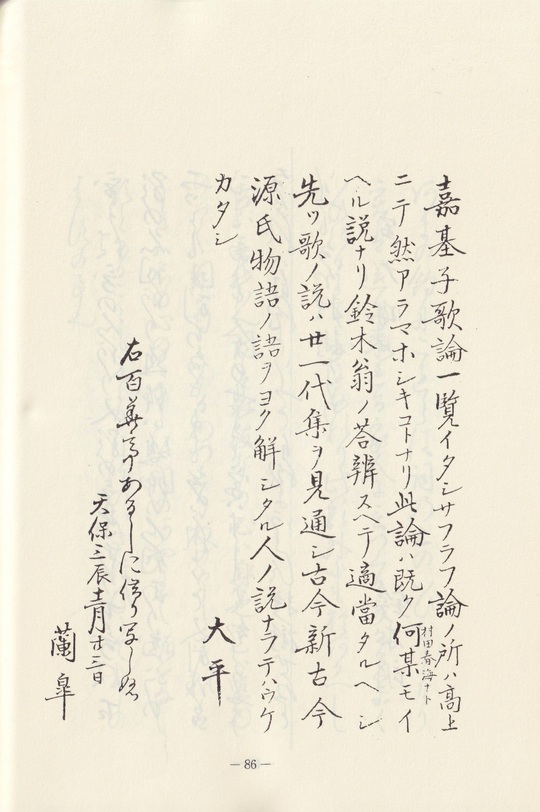 嘉基子歌論一覧イタシサフラフ論ノ所ハ高上
ニテ然アラマホシキコトナリ此論ハ既ク何某モイ
村田春海ナト
ヘル説ナリ鈴木翁ノ答辨スヘテ適當タルヘシ
先ツ歌ノ説ハ廿一代集ヲ見通シ古今新古今
源氏物語ノ語ヲヨク解シタル人ノ説ナラテハウケ
カタシ
大平
右百
あるしに借り写しぬ
天保三辰十二月廿三日
蘭皐
— 86 —